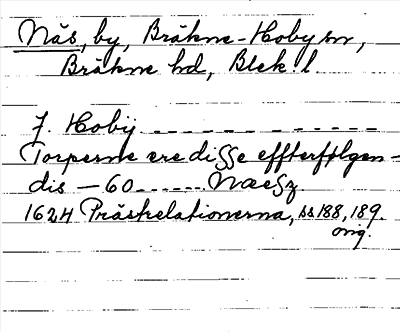 Näs, by, Bräkne-Hoby sn,
Bräkne hd, Blek. l.
J. Hobÿ - - - - - - - - - - - -
Torperne ere disse effterfølgen-
dis - 60 - - - - - - Naesz.
1624 Prästrelationerna, ss 188, 189.
orig.